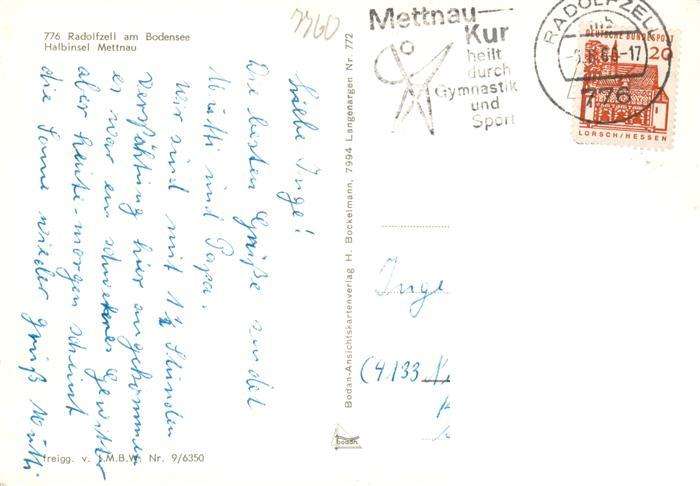 776 Radolfzell am Bodensee
Halbinsel Mettnau
7760
Mettnau-
Kur
heilt
durch
Gymnastik
und
Sport
RADOLFZELL
-17
776
DEUTSCHE BUNDESPOST
20
LORSCH/HESSEN
Liebe Inge!
Die besten Grüße sendet
Mutti und Papa.
Wir sind mit 1½ Stunden
Verspätung hier angekommen
es war ein schweres Gewitter
aber heute-morgen scheint
die Sonne wieder gruß Mutti.
Bodan-Ansichtskartenverlag H. Bockelmann, 7994 Langenargen Nr. 772
Inge
(4133
bodan
freigg. v. I.M.B.W. Nr. 9/6350